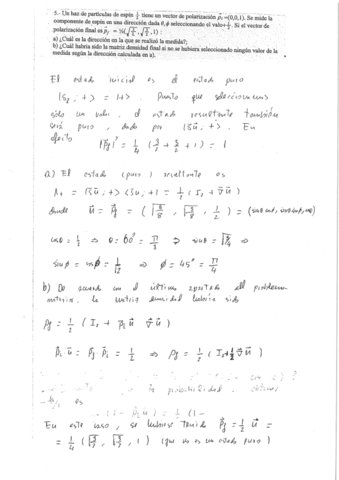 5.- Un haz de partículas de espín ½ tiene un vector de polarización p⃗ᵢ=(0,0,1). Se mide la
componente de espín en una dirección dada θ,φ seleccionando el valor+½. Si el vector de
polarización final es p⃗f = ½(√(3/2), √(3/2), 1) :
a) ¿Cuál es la dirección en la que se realizó la medida?;
b) ¿Cuál habría sido la matriz densidad final si no se hubiera seleccionado ningún valor de la
medida según la dirección calculada en a).
El estado inicial es el estado puro
|S₃; +> = |+>. Puesto que seleccionamos
sólo un valor, el estado resultante también
será puro, dado por |S⃗u⃗; +>. En
efecto |p⃗f|² = 1/4 (3/2 + 3/2 + 1) = 1
a) El estado (puro) resultante es
= |S⃗u⃗; +><S⃗u⃗; +| = 1/2 (I₂ + σ⃗u⃗)
donde u⃗ = p⃗f = (√(3/8), √(3/8), 1/2) = (sinθ cosφ, sinθ sinφ, cosθ)
cosθ = 1/2 ⇒ θ = 60° = π/3 ⇒ sinθ = √(3/4) ⇒
sinφ = cosφ = 1/√2 ⇒ φ = 45° = π/4
b) De acuerdo con el último apartado del problema
la matriz densidad habría sido
ρf = 1/2 (I₂ + p⃗ᵢu⃗ σ⃗u⃗)
p⃗ᵢu⃗ = p⃗f·p⃗ᵢ = 1/2 ⇒ ρf = 1/2 (I₂ + 1/2 σ⃗u⃗)
la probabilidad
es
(1 - p⃗ᵢu⃗) = 1/2 (1 -
En este caso, se hubiese tenido p⃗f = 1/2 u⃗ =
= 1/4 (√(3/2), √(3/2), 1) (que no es un estado puro)